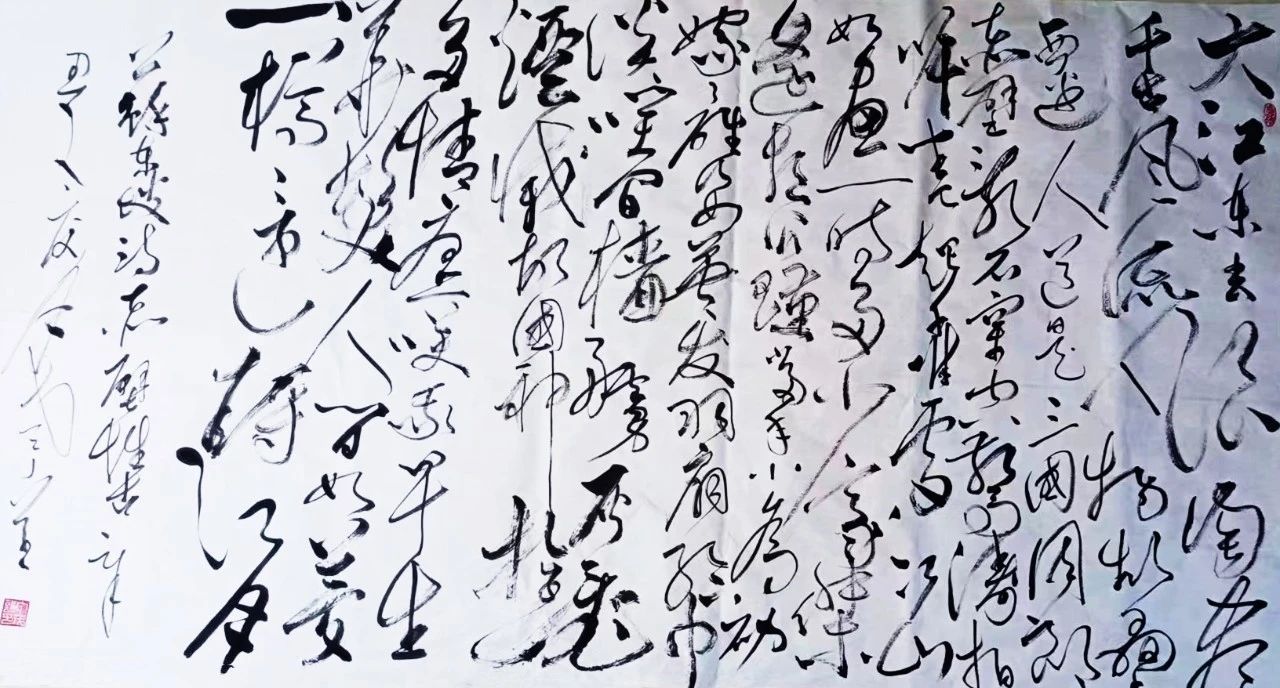 大江东去浪淘尽
千古风流人物故垒
西边人道是三國周郎
赤壁乱石穿空惊涛拍
岸卷起千堆雪江山
如画一时多少豪杰
遥想公瑾当年小乔初
嫁了雄姿英发羽扇纶巾
谈笑间樯橹灰飞
烟灭故國神游
多情应笑我早生
华发人间如梦
一樽还酹江月
苏东坡词赤壁怀古